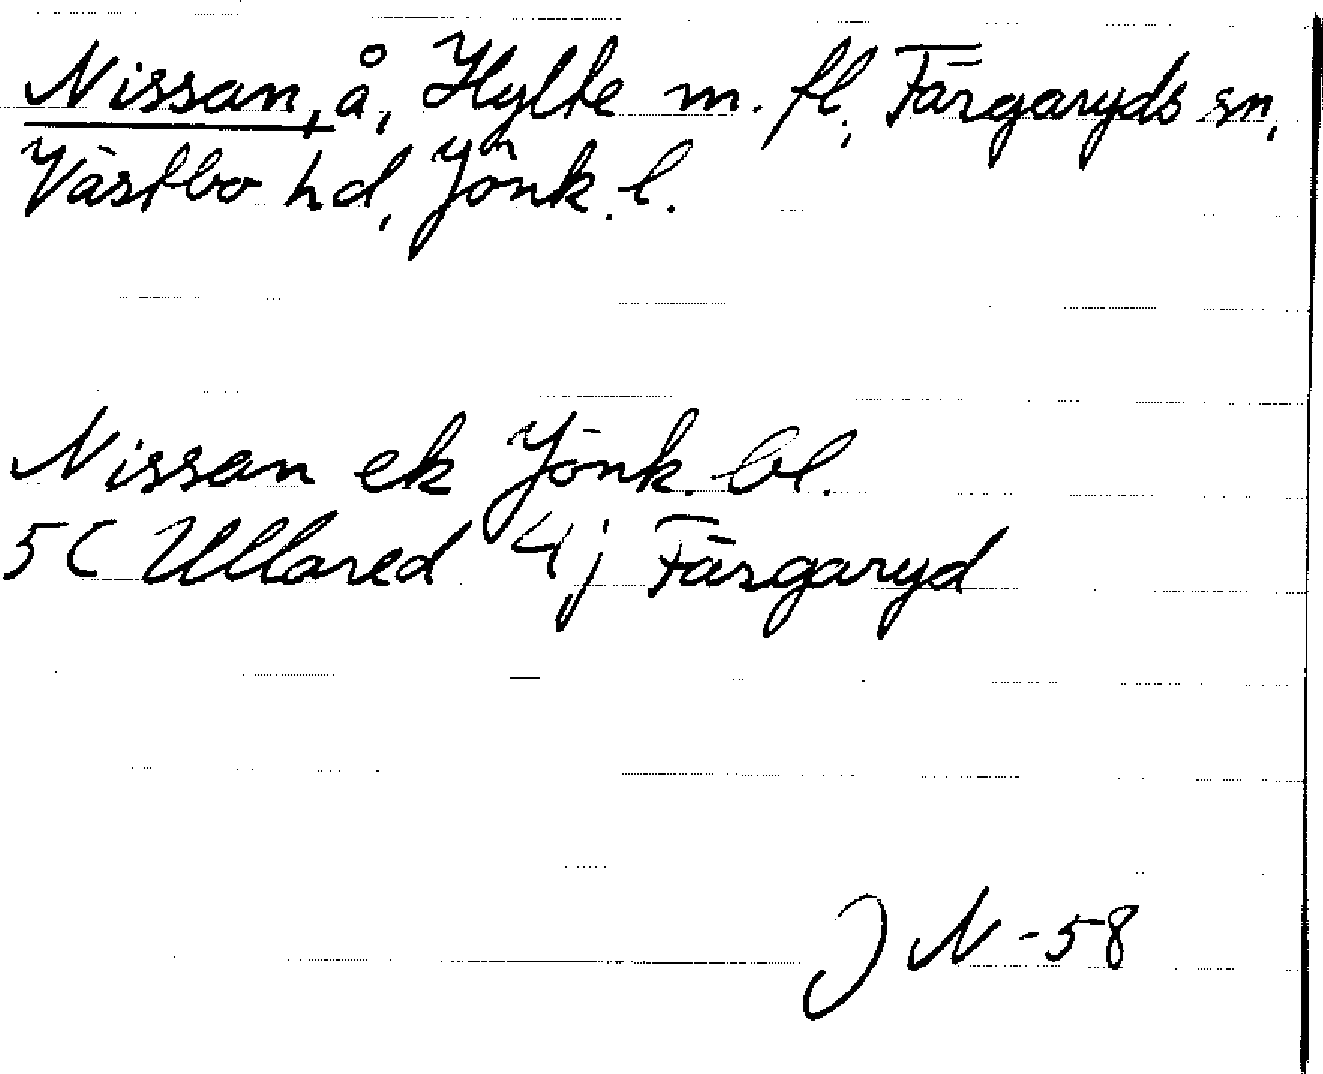 Nissan, å, Hylte m. fl., Färgaryds sn,
Västbo hd, Jönk. l.
Nissan ek Jönk. bl.
5C Ullared 4j Färgaryd
JN -58